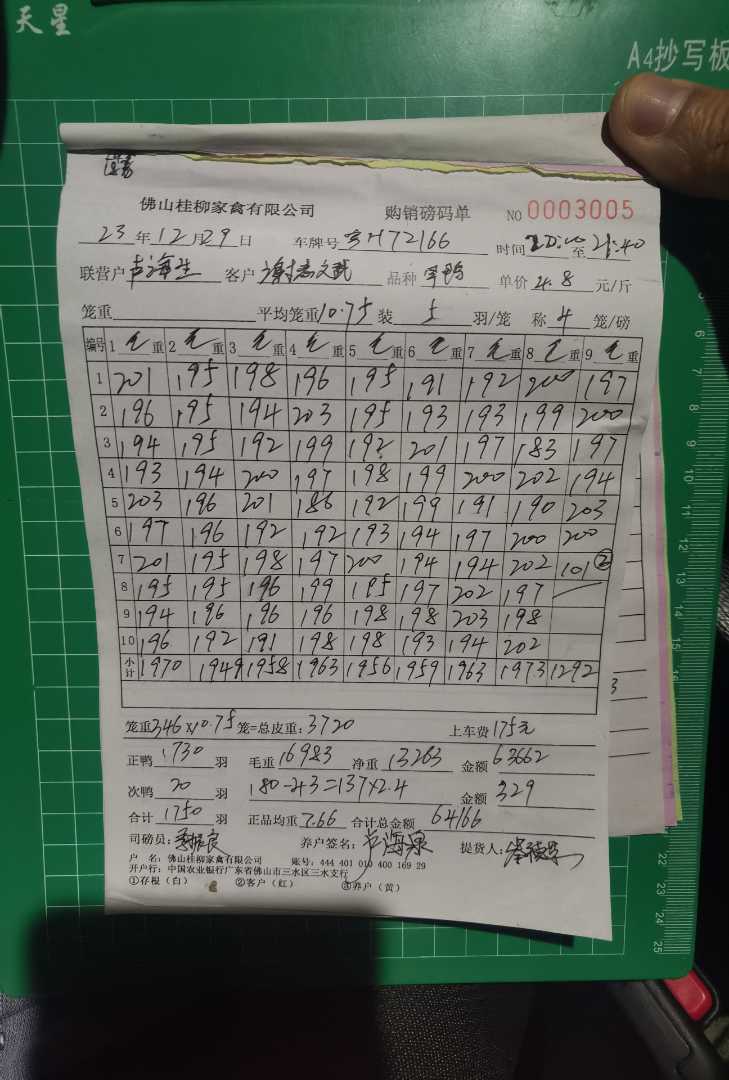 天星
A4抄写板
佛山桂柳家禽有限公司 购销磅码单 NO 0003005
23 年 12 月 29 日 车牌号 72166 时间 至 21:40
联营户 客户 品种 单价 4.8 元/斤
笼重 平均笼重 10.75 装 5 羽/笼 称 4 笼/磅
编号 1 毛重 2 毛重 3 毛重 4 毛重 5 毛重 6 毛重 7 毛重 8 毛重 9 毛重
1 201 195 198 196 195 191 192 200 197
2 196 195 194 203 195 193 193 199 200
3 194 195 192 199 192 201 197 183 197
4 193 194 200 197 198 199 200 202 194
5 203 196 201 186 192 199 191 190 203
6 197 196 192 192 193 194 197 200 200
7 201 195 198 197 200 194 194 202 101 ②
8 195 195 196 199 195 197 202 197
9 194 196 196 196 198 198 203 198
10 196 192 191 198 198 193 194 202
小计 1970 1949 1958 1963 1956 1959 1963 1973 1292
笼重 346 X 10.75 笼=总皮重: 3720 上车费 175元
正鸭 1730 羽 毛重 16983 净重 13263 金额 63662
次鸭 20 羽 180-43=137X2.4 金额 329
合计 1750 羽 正品均重 7.66 合计总金额 64166
司磅员: 养户签名: 提货人:
户 名: 佛山桂柳家禽有限公司 账号: 444 401 010 400 169 29
开户行: 中国农业银行广东省佛山市三水区三水支行
①存根（白） ②客户（红） ③养户（黄）